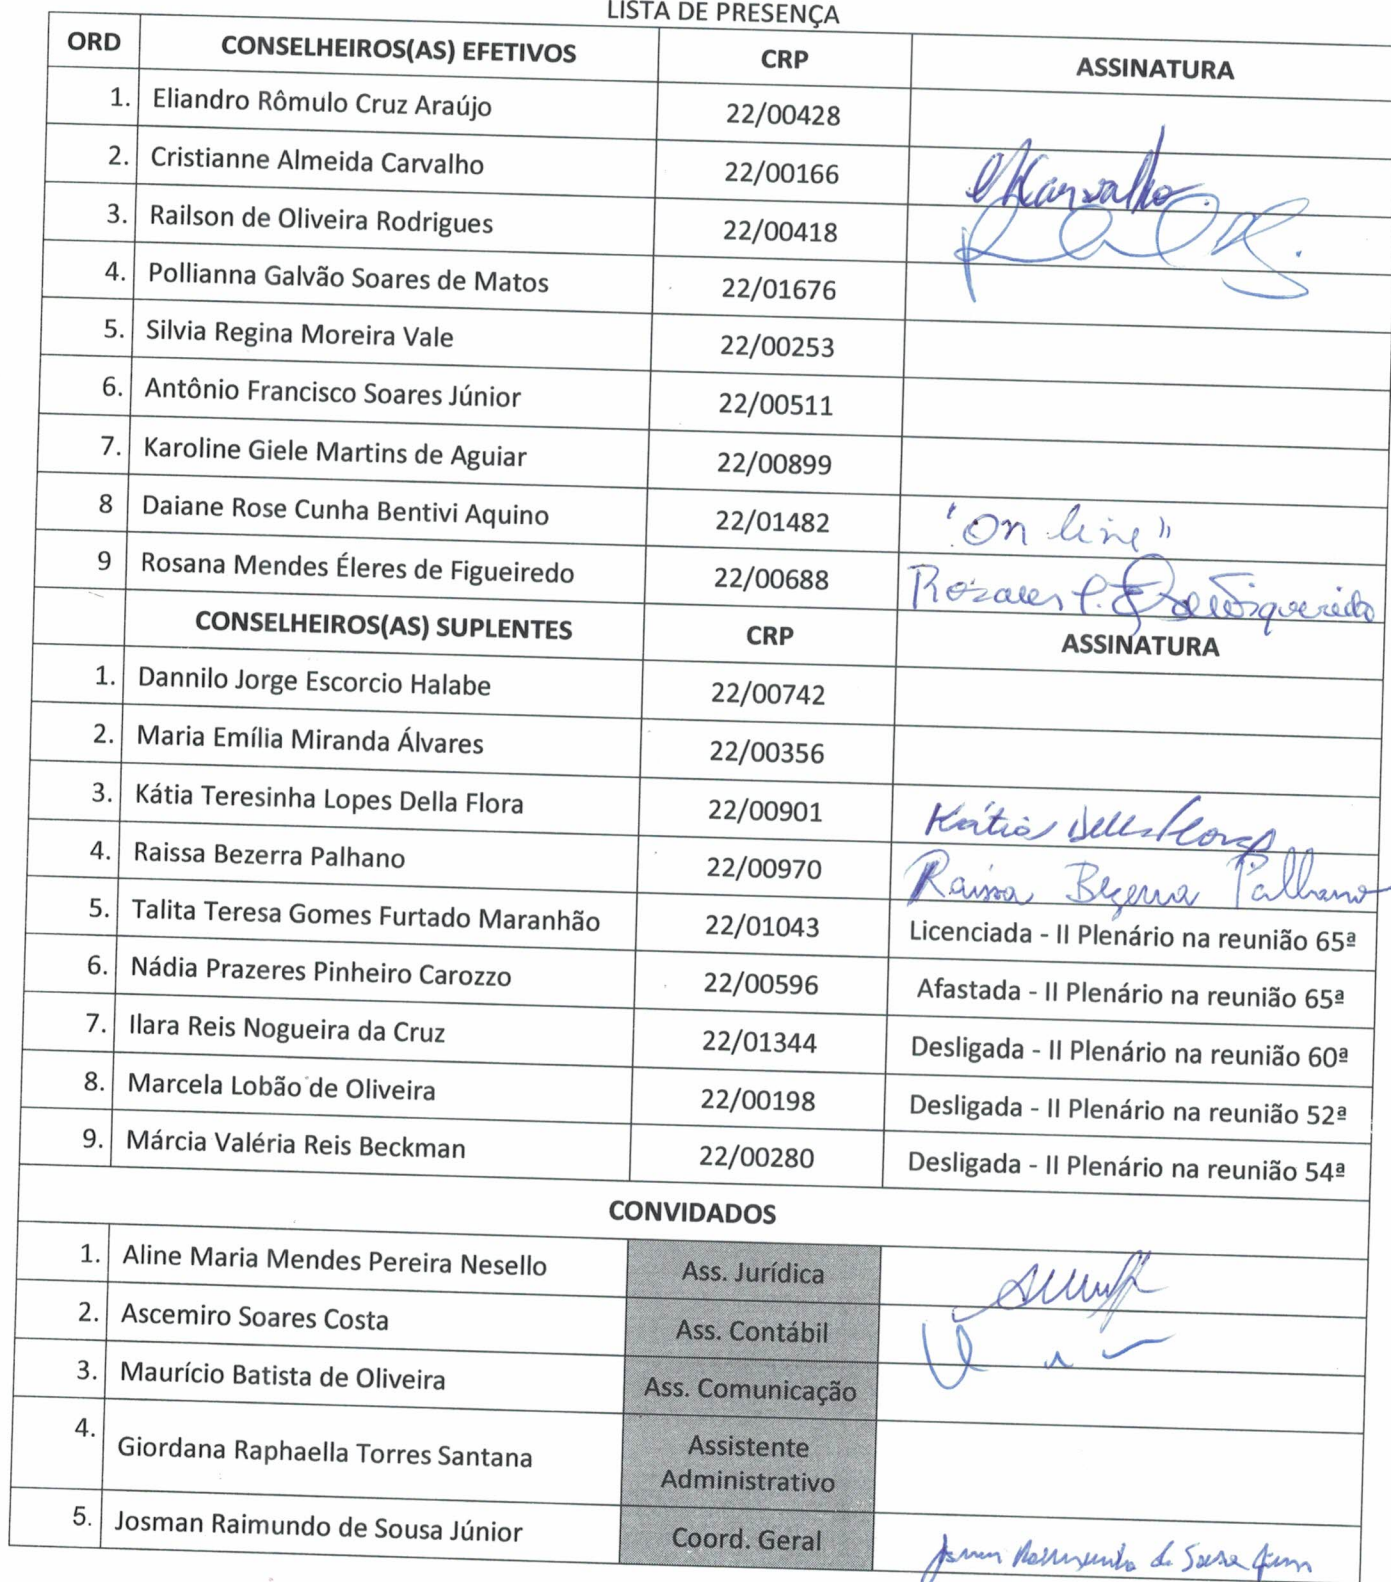 LISTA DE PRESENÇA
ORD CONSELHEIROS(AS) EFETIVOS CRP ASSINATURA
1. Eliandro Rômulo Cruz Araújo 22/00428
2. Cristianne Almeida Carvalho 22/00166 Carvalho
3. Railson de Oliveira Rodrigues 22/00418
4. Pollianna Galvão Soares de Matos 22/01676
5. Silvia Regina Moreira Vale 22/00253
6. Antônio Francisco Soares Júnior 22/00511
7. Karoline Giele Martins de Aguiar 22/00899
8 Daiane Rose Cunha Bentivi Aquino 22/01482 "On line"
9 Rosana Mendes Éleres de Figueiredo 22/00688 Figueiredo
CONSELHEIROS(AS) SUPLENTES CRP ASSINATURA
1. Dannilo Jorge Escorcio Halabe 22/00742
2. Maria Emília Miranda Álvares 22/00356
3. Kátia Teresinha Lopes Della Flora 22/00901 Kátia Della Flora
4. Raissa Bezerra Palhano 22/00970 Raissa Bezerra Palhano
5. Talita Teresa Gomes Furtado Maranhão 22/01043 Licenciada - II Plenário na reunião 65ª
6. Nádia Prazeres Pinheiro Carozzo 22/00596 Afastada - II Plenário na reunião 65ª
7. Ilara Reis Nogueira da Cruz 22/01344 Desligada - II Plenário na reunião 60ª
8. Marcela Lobão de Oliveira 22/00198 Desligada - II Plenário na reunião 52ª
9. Márcia Valéria Reis Beckman 22/00280 Desligada - II Plenário na reunião 54ª
CONVIDADOS
1. Aline Maria Mendes Pereira Nesello Ass. Jurídica
2. Ascemiro Soares Costa Ass. Contábil
3. Maurício Batista de Oliveira Ass. Comunicação
4. Giordana Raphaella Torres Santana Assistente
Administrativo
5. Josman Raimundo de Sousa Júnior Coord. Geral Josman Raimundo de Sousa Júnior